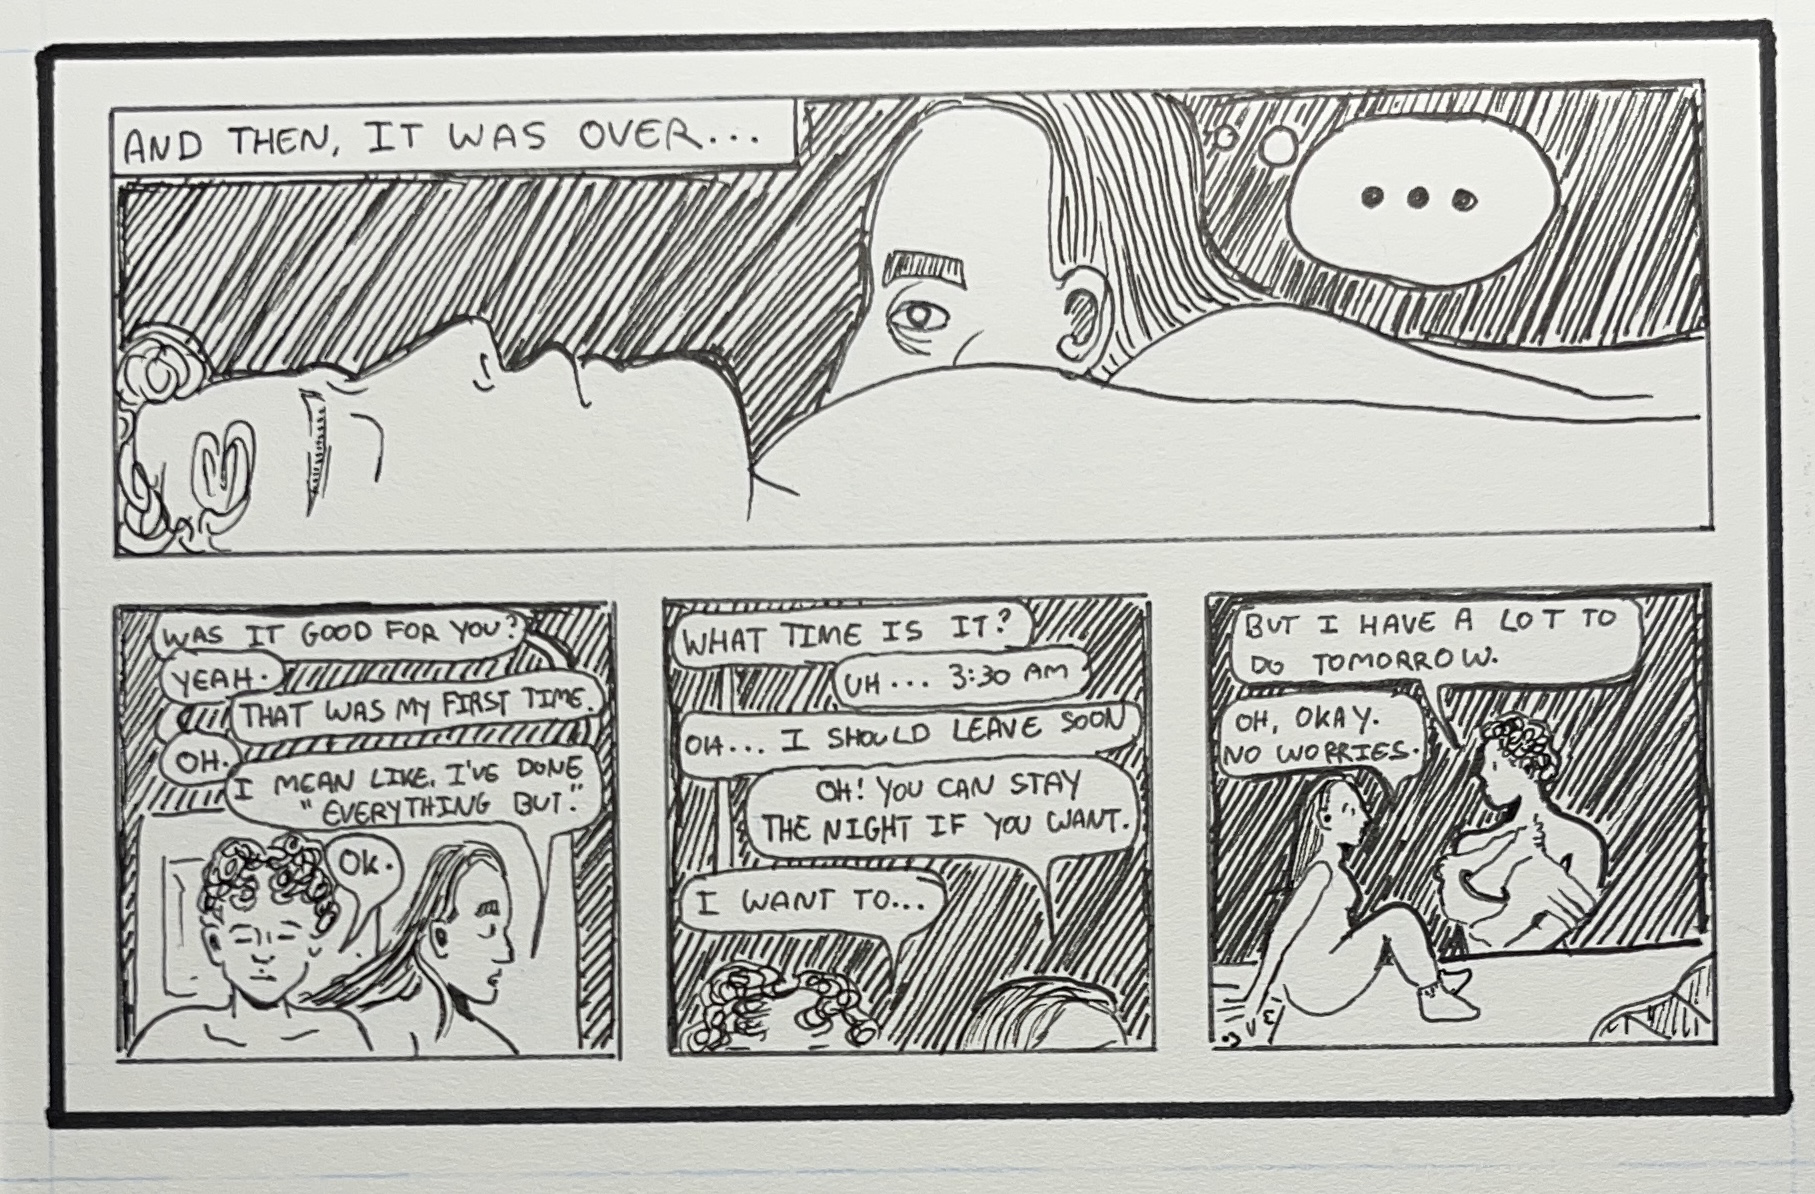 AND THEN, IT WAS OVER...
...
WAS IT GOOD FOR YOU?
YEAH.
THAT WAS MY FIRST TIME.
OH.
I MEAN LIKE, I'VE DONE
"EVERYTHING BUT."
OK.
WHAT TIME IS IT?
UH... 3:30 AM
OH... I SHOULD LEAVE SOON
OH! YOU CAN STAY
THE NIGHT IF YOU WANT.
I WANT TO...
BUT I HAVE A LOT TO
DO TOMORROW.
OH, OKAY.
NO WORRIES.